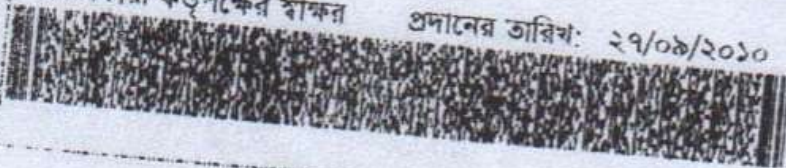 কর্তৃপক্ষের স্বাক্ষর প্রদানের তারিখ: ২৭/০৯/২০১০